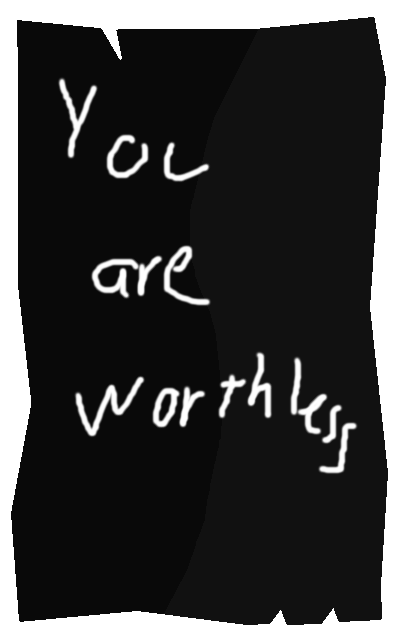 You
are
worthless